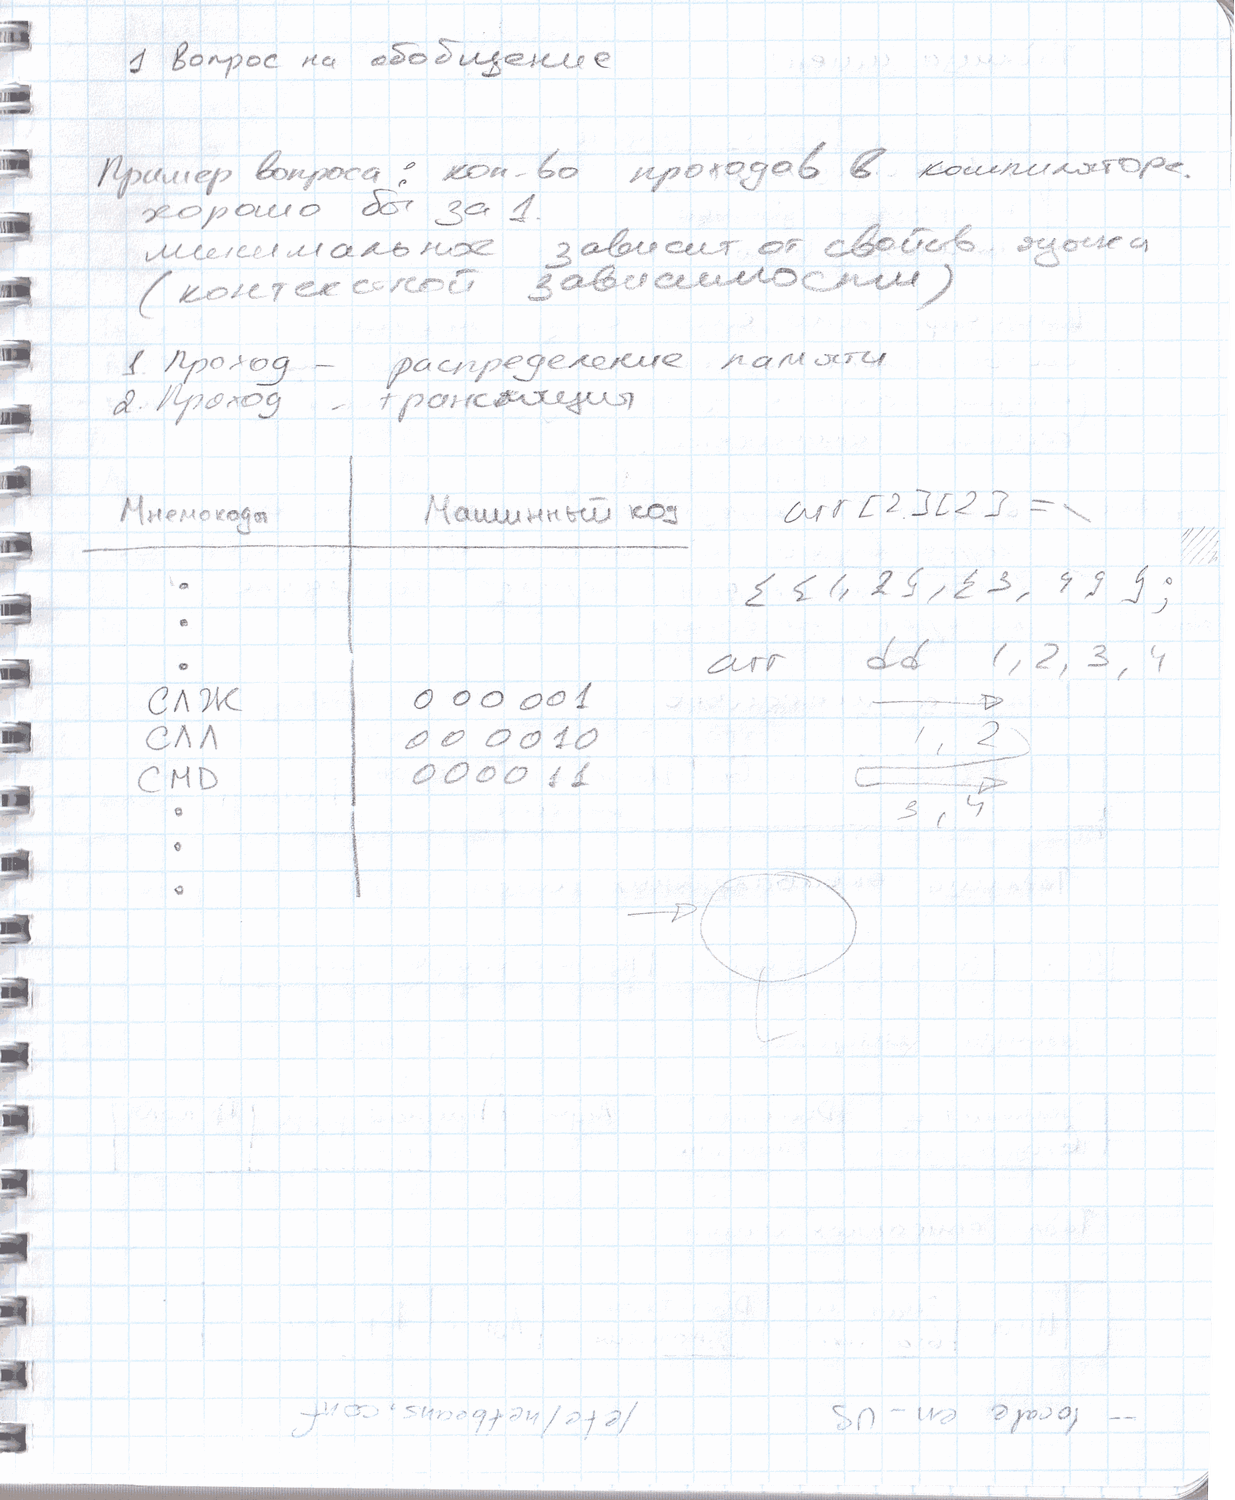 1 Вопрос на обобщение
Пример вопроса: кол-во проходов в компиляторе.
хорошо бы за 1.
минимальное зависит от свойств языка
(контекстной зависимости)
1. Проход - распределение памяти
2. Проход - трансляция
Мнемокоды Машинный код
СЛЖ 000001
СЛЛ 000010
СМD 000011
arr [2][2] = \
{ {1, 2}, {3, 4} };
arr dd 1, 2, 3, 4
1, 2
3, 4
-- locale en-US /etc/netbeans.conf